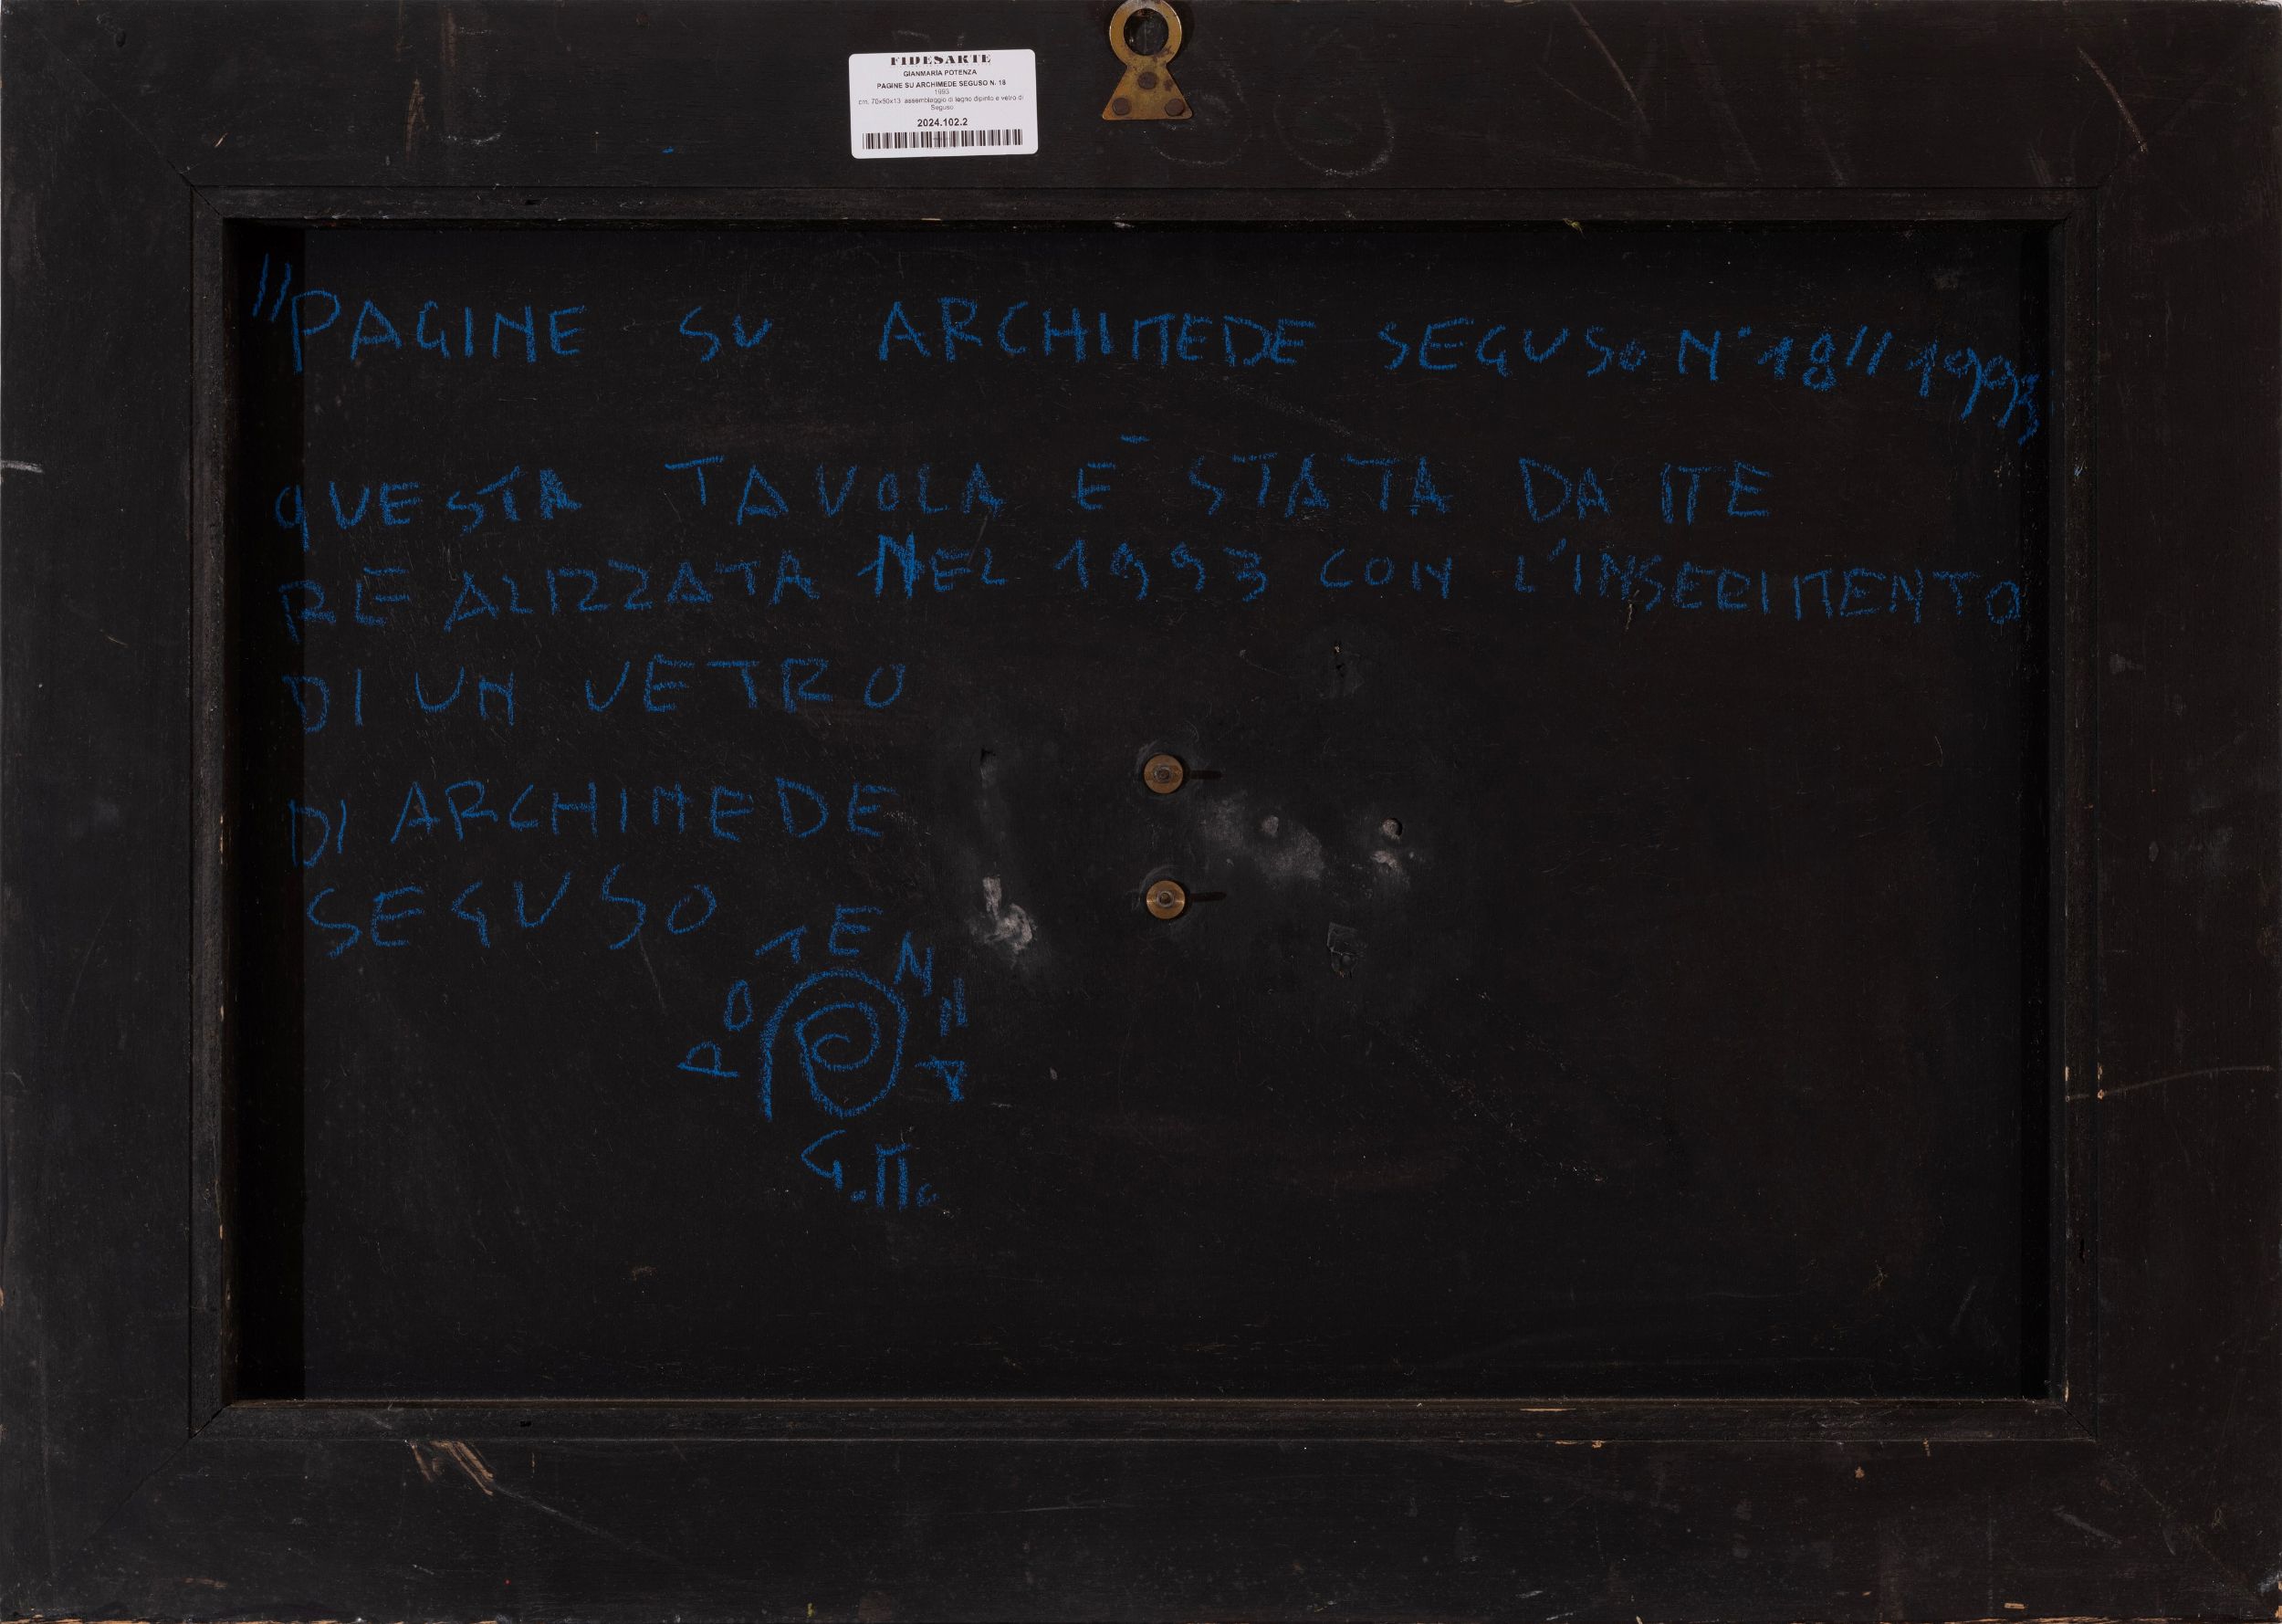 FIDESARTE
GIANMARIA POTENZA
PAGINE SU ARCHIMEDE SEGUSO N. 18
1993
cm. 70x50x13 assemblaggio di legno dipinto e vetro di
Seguso
2024.102.2
"PAGINE SU ARCHIMEDE SEGUSO N° 18" 1993
QUESTA TAVOLA È STATA DA ME
REALIZZATA NEL 1993 CON L'INSERIMENTO
DI UN VETRO
DI ARCHIMEDE
SEGUSO
POTENZA
G.M.